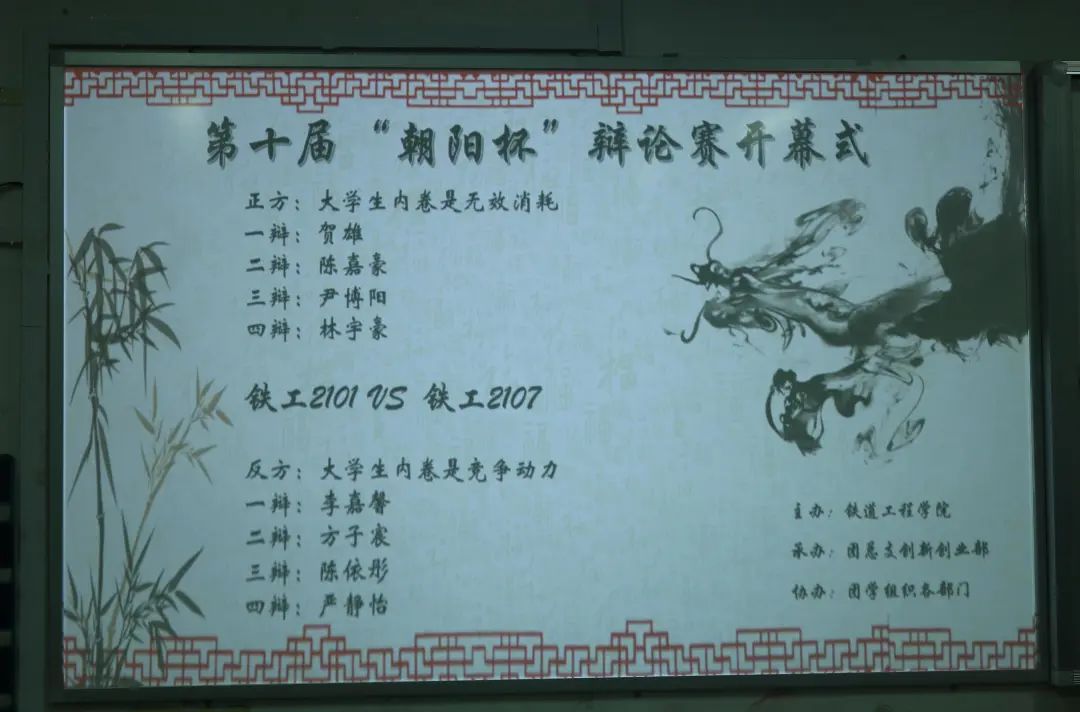 第十届“朝阳杯”辩论赛开幕式
正方：大学生内卷是无效消耗
一辩：贺雄
二辩：陈嘉豪
三辩：尹博阳
四辩：林宇豪
铁工2101 VS 铁工2107
反方：大学生内卷是竞争动力
一辩：李嘉馨
二辩：方子宸
三辩：陈依彤
四辩：严静怡
主办：铁道工程学院
承办：团总支创新创业部
协办：团学组织各部门